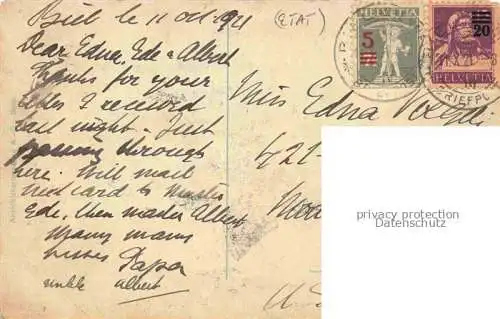 Biel le 11 Oct 1921
(ETAT)
Dear Edna, Ede & Albert
Thanks for your
letter I received
last night - Just
passing through
here. Will mail
next card to Master
Ede, then master Albert
Many many
kisses Papa
uncle Albert
Miss Edna
421-
HELVETIA
5
HELVETIA
20
BRIEFPO
privacy protection
Datenschutz